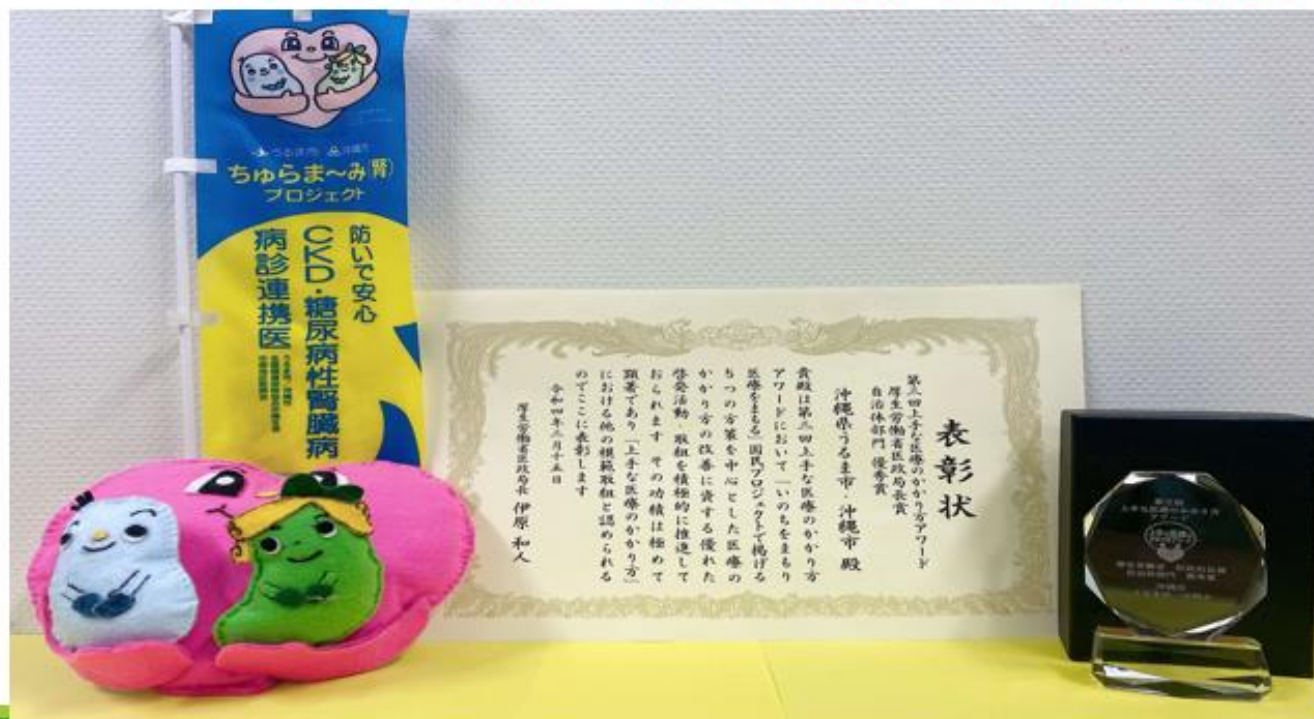 うるま市 沖縄市
ちゅらま～み(腎)
プロジェクト
防いで安心
CKD・糖尿病性腎臓病
病診連携医
表彰状
第三回上手な医療のかかり方アワード
厚生労働省医政局長賞
自治体部門 優秀賞
沖縄県うるま市・沖縄市 殿
貴殿は第三回上手な医療のかかり方
アワードにおいて「いのちをまもり
医療をまもる」国民プロジェクトで掲げる
5つの方策を中心とした医療の
かかり方の改善に資する優れた
啓発活動・取組を積極的に推進して
おられます その功績は極めて
顕著であり「上手な医療のかかり方」
における他の模範取組と認められる
のでここに表彰します
令和四年三月十五日
厚生労働省医政局長 伊原和人